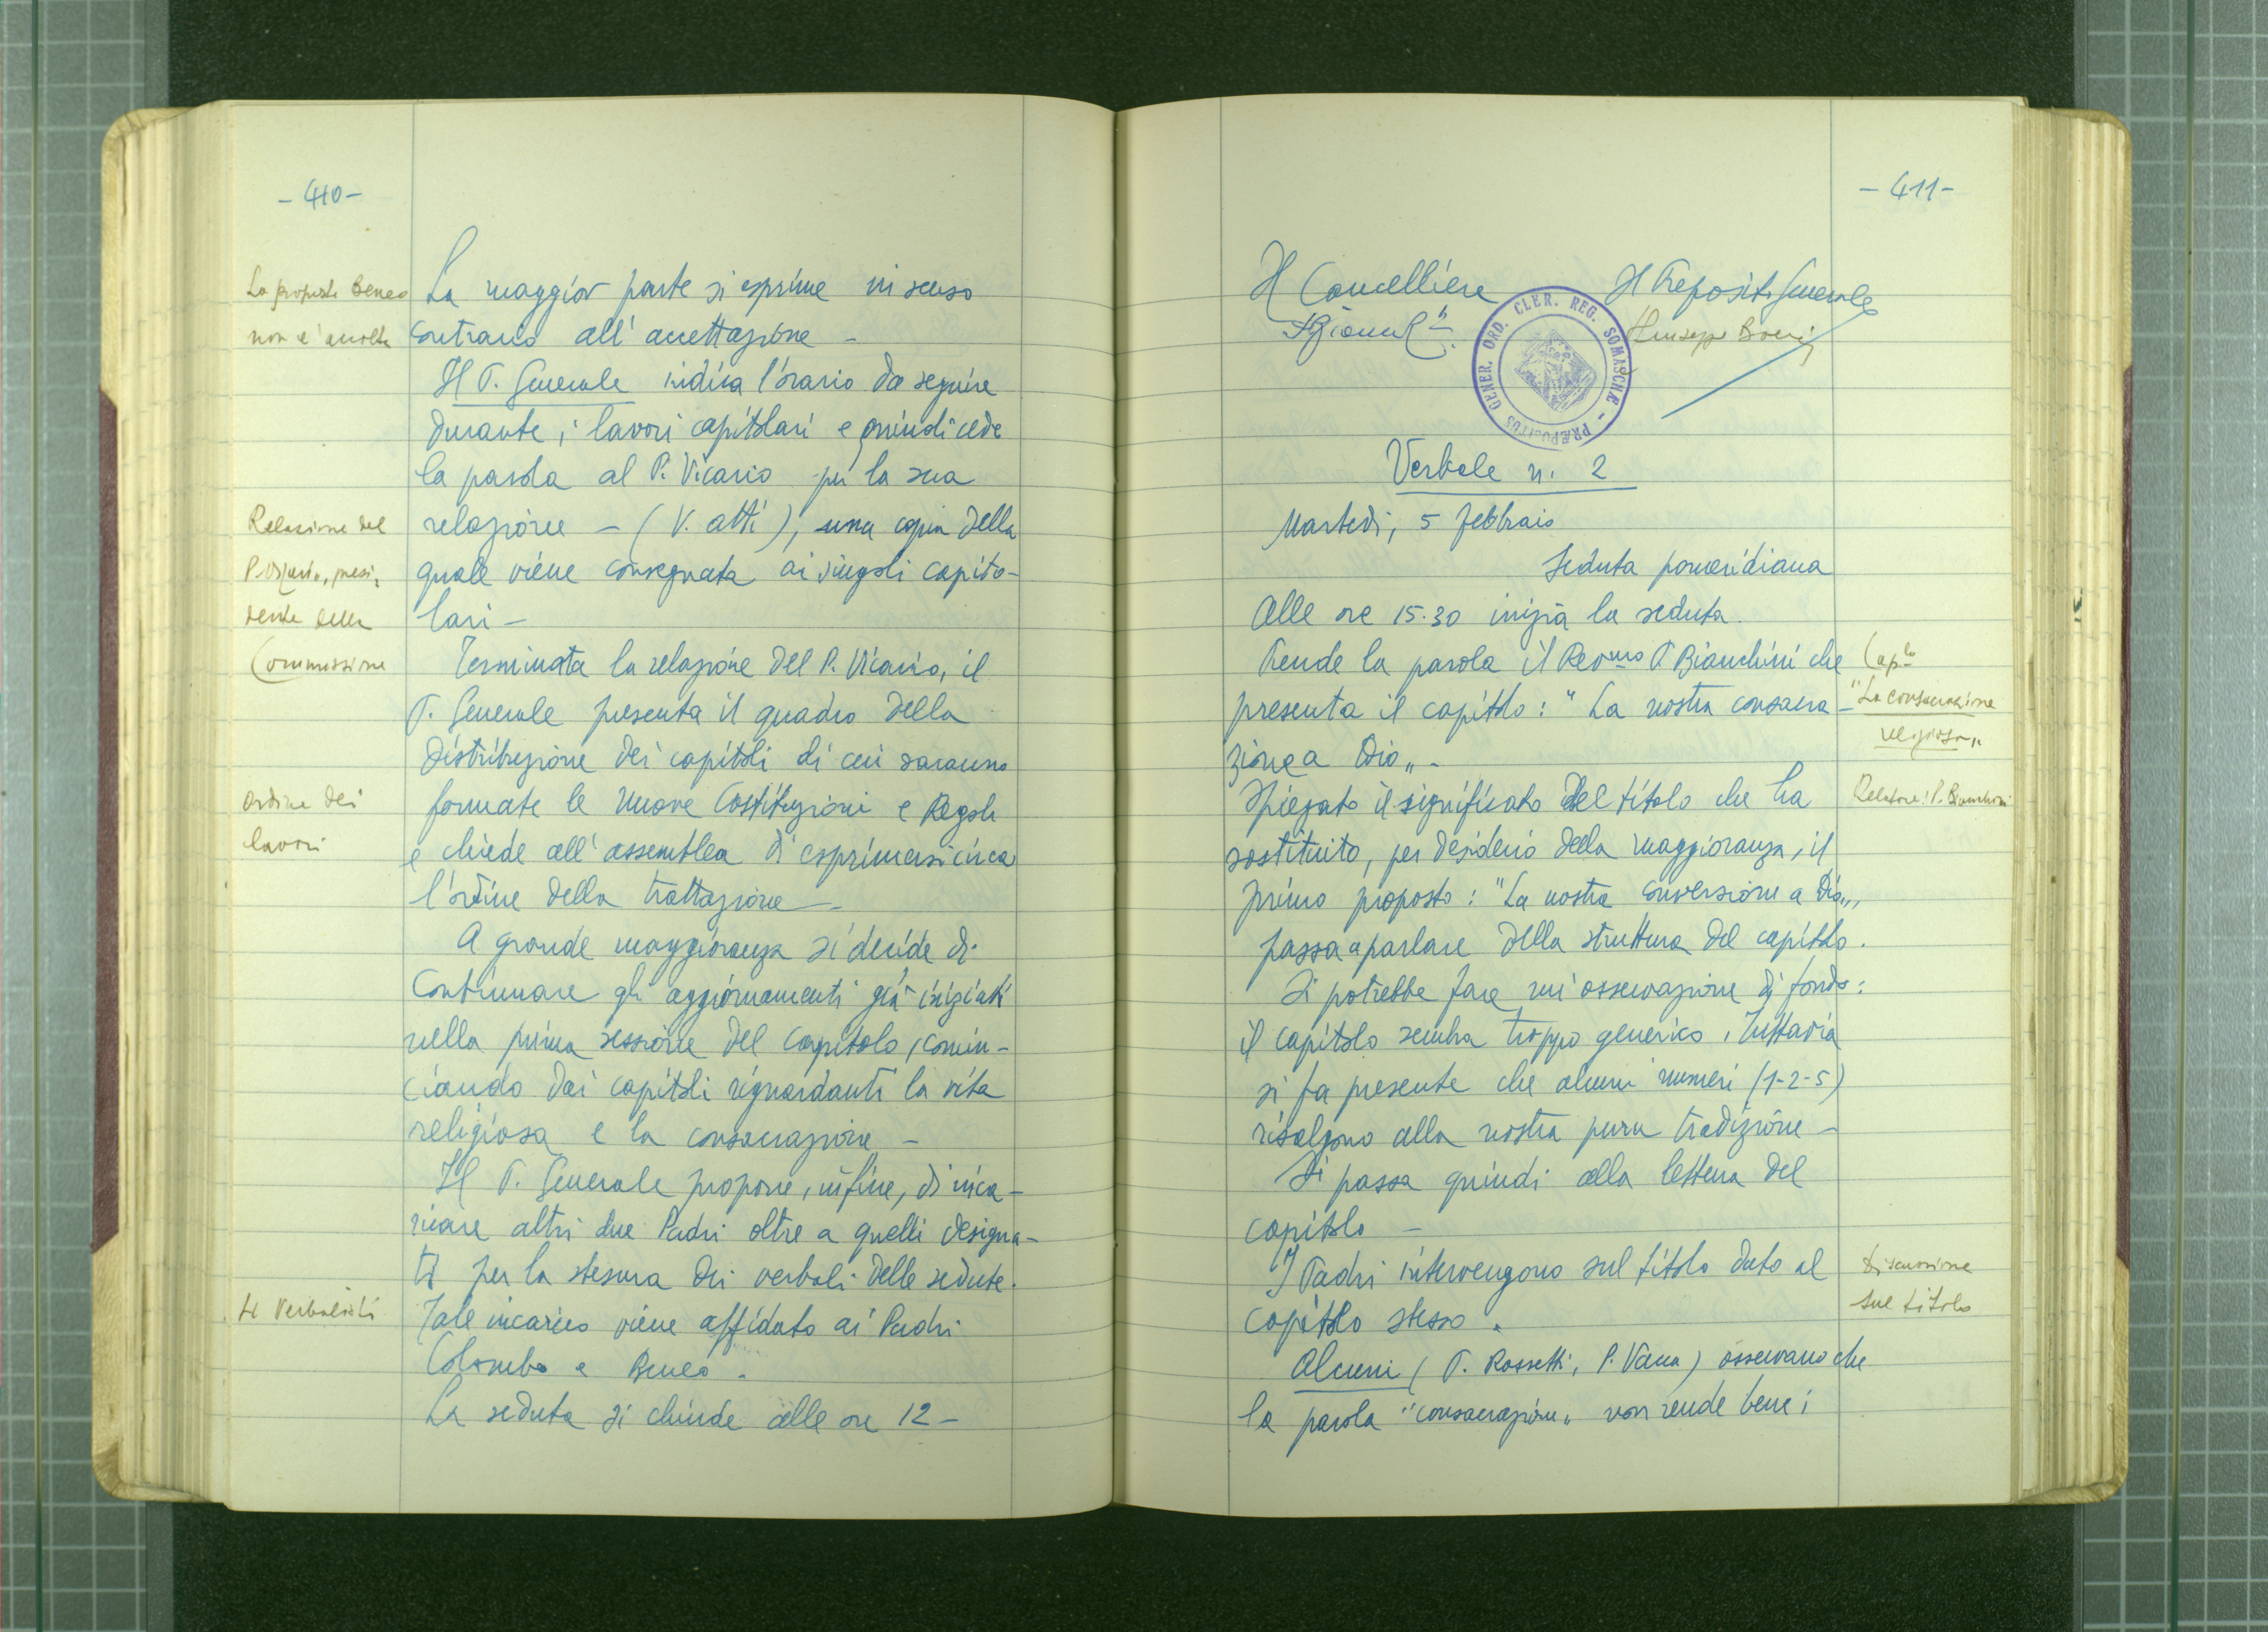 - 410 -
La proposta Beneo
non è accolta
La maggior parte si esprime in senso
contrario all'accettazione -
Il P. Generale indica l'orario da seguire
durante i lavori capitolari e quindi cede
la parola al P. Vicario per la sua
relazione - (V. atti), una copia della
quale viene consegnata ai singoli capito-
lari -
Relazione del
P. Vicario, presi-
dente della
Commissione
Terminata la relazione del P. Vicario, il
P. Generale presenta il quadro della
distribuzione dei capitoli di cui saranno
formate le nuove Costituzioni e Regole
e chiede all'assemblea di esprimersi circa
l'ordine della trattazione -
Ordine dei
lavori
A grande maggioranza si decide di
continuare gli aggiornamenti già iniziati
nella prima sessione del Capitolo, comin-
ciando dai capitoli riguardanti la vita
religiosa e la consacrazione -
Il P. Generale propone, infine, di inca-
ricare altri due Padri oltre a quelli designa-
ti per la stesura dei verbali delle sedute.
Tale incarico viene affidato ai Padri
Colombo e Beneo.
La seduta si chiude alle ore 12 -
Verbalisti
- 411 -
Il Cancelliere Il Preposito Generale
Giuseppe Boeris
PRÆPOSITUS GENER. ORD. CLER. REG. SOMASCHÆ
Verbale n. 2
Martedì, 5 febbraio
Seduta pomeridiana
Alle ore 15.30 inizia la seduta.
Prende la parola il Rev.mo P. Bianchini che
presenta il capitolo: "La nostra consacra-
zione a Dio„ -
Cap.lo
"La consacrazione
religiosa„
Spiegato il significato del titolo che ha
sostituito, per desiderio della maggioranza, il
primo proposto: "La nostra conversione a Dio„,
passa a parlare della struttura del capitolo.
Relatore: P. Bianchini
Si potrebbe fare un'osservazione di fondo:
il capitolo sembra troppo generico. Tuttavia
si fa presente che alcuni numeri (1-2-5)
risalgono alla nostra pura tradizione -
Si passa quindi alla lettura del
capitolo -
I Padri intervengono sul titolo dato al
capitolo stesso.
Discussione
sul titolo
Alcuni (P. Rossetti, P. Vacca) osservano che
la parola "consacrazione„ non rende bene i